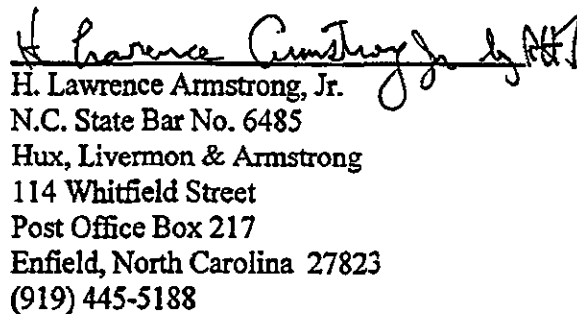 H Lawrence Armstrong Jr by
H. Lawrence Armstrong, Jr.
N.C. State Bar No. 6485
Hux, Livermon & Armstrong
114 Whitfield Street
Post Office Box 217
Enfield, North Carolina 27823
(919) 445-5188